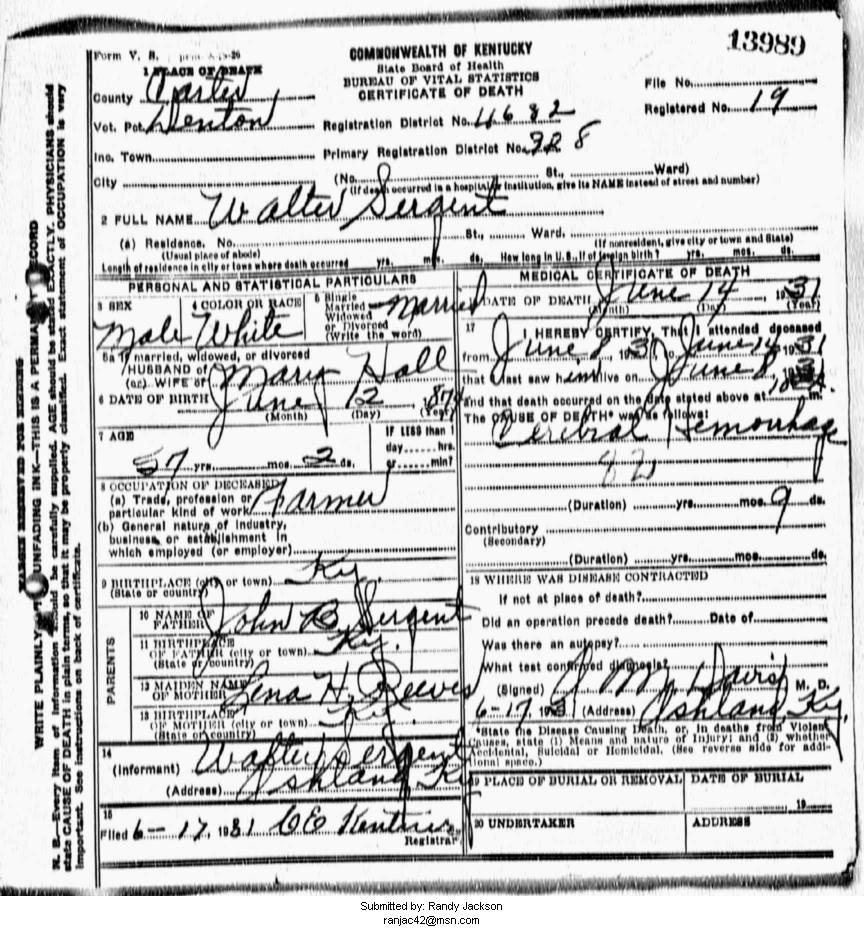 13989
Form V. S.
COMMONWEALTH OF KENTUCKY
State Board of Health
BUREAU OF VITAL STATISTICS
CERTIFICATE OF DEATH
1 PLACE OF DEATH
County Carter
Vot. Pct. Denton
Inc. Town
City
File No.
Registered No. 19
Registration District No. 4682
Primary Registration District No. 328
(No. St., Ward)
(If death occurred in a hospital or institution, give its NAME instead of street and number)
2 FULL NAME Walter Sergent
(a) Residence. No. St., Ward.
(Usual place of abode) (If nonresident, give city or town and State)
Length of residence in city or town where death occurred yrs. mos. ds. How long in U.S., if of foreign birth? yrs. mos. ds.
PERSONAL AND STATISTICAL PARTICULARS
3 SEX Male
4 COLOR OR RACE White
5 Single Married Widowed or Divorced (Write the word) Married
5a If married, widowed, or divorced
HUSBAND of
(or) WIFE of Mary Hall
6 DATE OF BIRTH June 12
(Month) (Day) (Year)
7 AGE 57 yrs. mos. 2 ds.
IF LESS than 1
day hrs.
or min?
8 OCCUPATION OF DECEASED
(a) Trade, profession or
particular kind of work Farmer
(b) General nature of industry,
business, or establishment in
which employed (or employer)
9 BIRTHPLACE (city or town) Ky.
(State or country)
PARENTS
10 NAME OF FATHER John B. Sergent
11 BIRTHPLACE OF FATHER (city or town) Ky.
(State or country)
12 MAIDEN NAME OF MOTHER Lena H. Reeves
13 BIRTHPLACE OF MOTHER (city or town) Ky.
(State or country)
14
(Informant) Walter Sergent
(Address) Ashland Ky
15
Filed 6-17, 1931 CE
Registrar
MEDICAL CERTIFICATE OF DEATH
DATE OF DEATH June 14 1931
(Month) (Day) (Year)
17 I HEREBY CERTIFY, That I attended deceased
from June 8, 1931 to June 14, 1931
that I last saw him alive on June 8, 1931
and that death occurred on the date stated above at m.
The CAUSE OF DEATH* was as follows:
Cerebral Hemorrhage
82
(Duration) yrs. mos. 9 ds.
Contributory
(Secondary)
(Duration) yrs. mos. ds.
18 WHERE WAS DISEASE CONTRACTED
If not at place of death?
Did an operation precede death? Date of
Was there an autopsy?
What test confirmed diagnosis?
(Signed) J M Davis M. D.
6-17 1931 (Address) Ashland, Ky.
*State the Disease Causing Death, or, in deaths from Violent
Causes, state (1) Means and nature of Injury; and (2) whether
Accidental, Suicidal or Homicidal. (See reverse side for addi-
tional space.)
19 PLACE OF BURIAL OR REMOVAL
DATE OF BURIAL
19
20 UNDERTAKER
ADDRESS
MARGIN RESERVED FOR BINDING
WRITE PLAINLY WITH UNFADING INK—THIS IS A PERMANENT RECORD
N. B.—Every item of information should be carefully supplied. AGE should be stated EXACTLY. PHYSICIANS should
state CAUSE OF DEATH in plain terms, so that it may be properly classified. Exact statement of OCCUPATION is very
important. See instructions on back of certificate.
Submitted by: Randy Jackson
ranjac42@msn.com